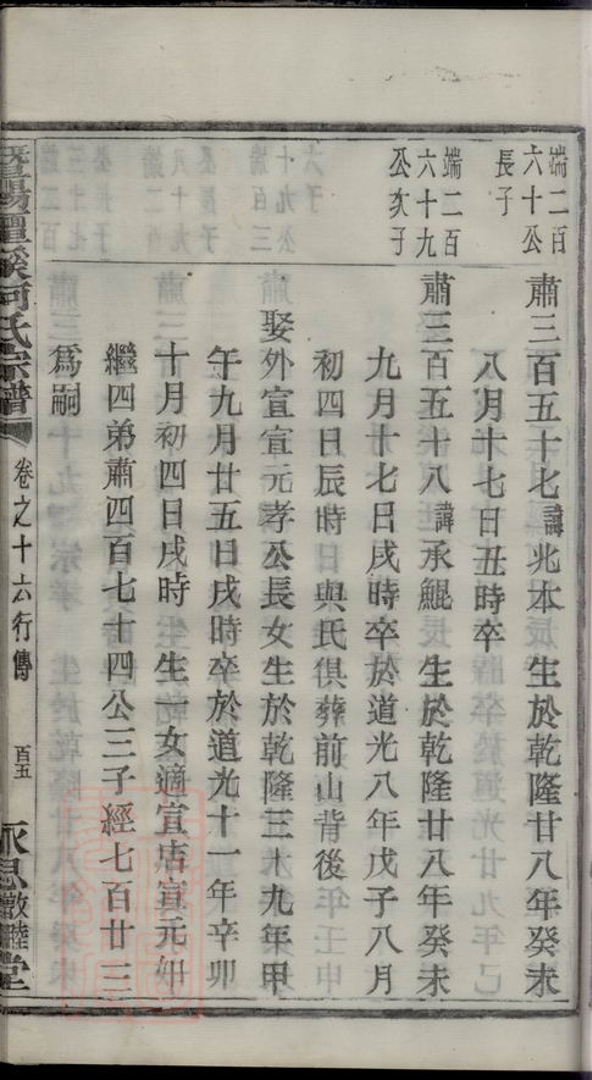 端二百
六十公
長子
肅三百五十七諱兆本　生於乾隆廿八年癸未
八月十七日丑時卒
端二百
六十九
公亥子
肅三百五十八諱承鯤　生於乾隆廿八年癸未
九月十七日戌時卒於道光八年戊子八月
初四日辰時與氏俱葬前山背後
娶外宣宣元孝公長女生於乾隆三十九年甲
午九月廿五日戌時卒於道光十一年辛卯
十月初四日戌時　生一女適宜店宣元
繼四弟肅四百七十四公三子經七百廿三
爲嗣
暨陽澧溪何氏宗譜
卷之十六行傳
百五
永思敦睦堂